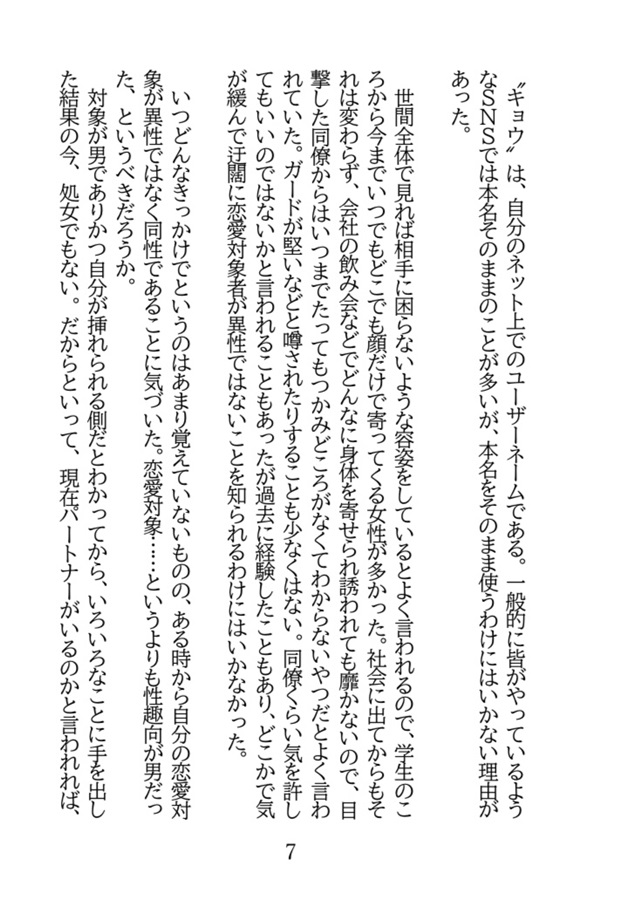 〝キョウ〟は、自分のネット上でのユーザーネームである。一般的に皆がやっているよう
なSNSでは本名そのままのことが多いが、本名をそのまま使うわけにはいかない理由が
あった。
世間全体で見れば相手に困らないような容姿をしているとよく言われるので、学生のこ
ろから今までいつでもどこでも顔だけで寄ってくる女性が多かった。社会に出てからもそ
れは変わらず、会社の飲み会などでどんなに身体を寄せられ誘われても靡かないので、目
撃した同僚からはいつまでたってもつかみどころがなくてわからないやつだとよく言わ
れていた。ガードが堅いなどと噂されたりすることも少なくはない。同僚くらい気を許し
てもいいのではないかと言われることもあったが過去に経験したこともあり、どこかで気
が緩んで迂闊に恋愛対象者が異性ではないことを知られるわけにはいかなかった。
いつどんなきっかけでというのはあまり覚えていないものの、ある時から自分の恋愛対
象が異性ではなく同性であることに気づいた。恋愛対象……というよりも性趣向が男だっ
た、というべきだろうか。
対象が男でありかつ自分が挿れられる側だとわかってから、いろいろなことに手を出し
た結果の今、処女でもない。だからといって、現在パートナーがいるのかと言われれば、
7